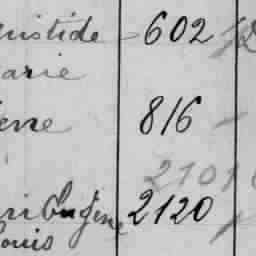 ristide 602
arie
erre 816
2101
ri Eugène 2120
ouis